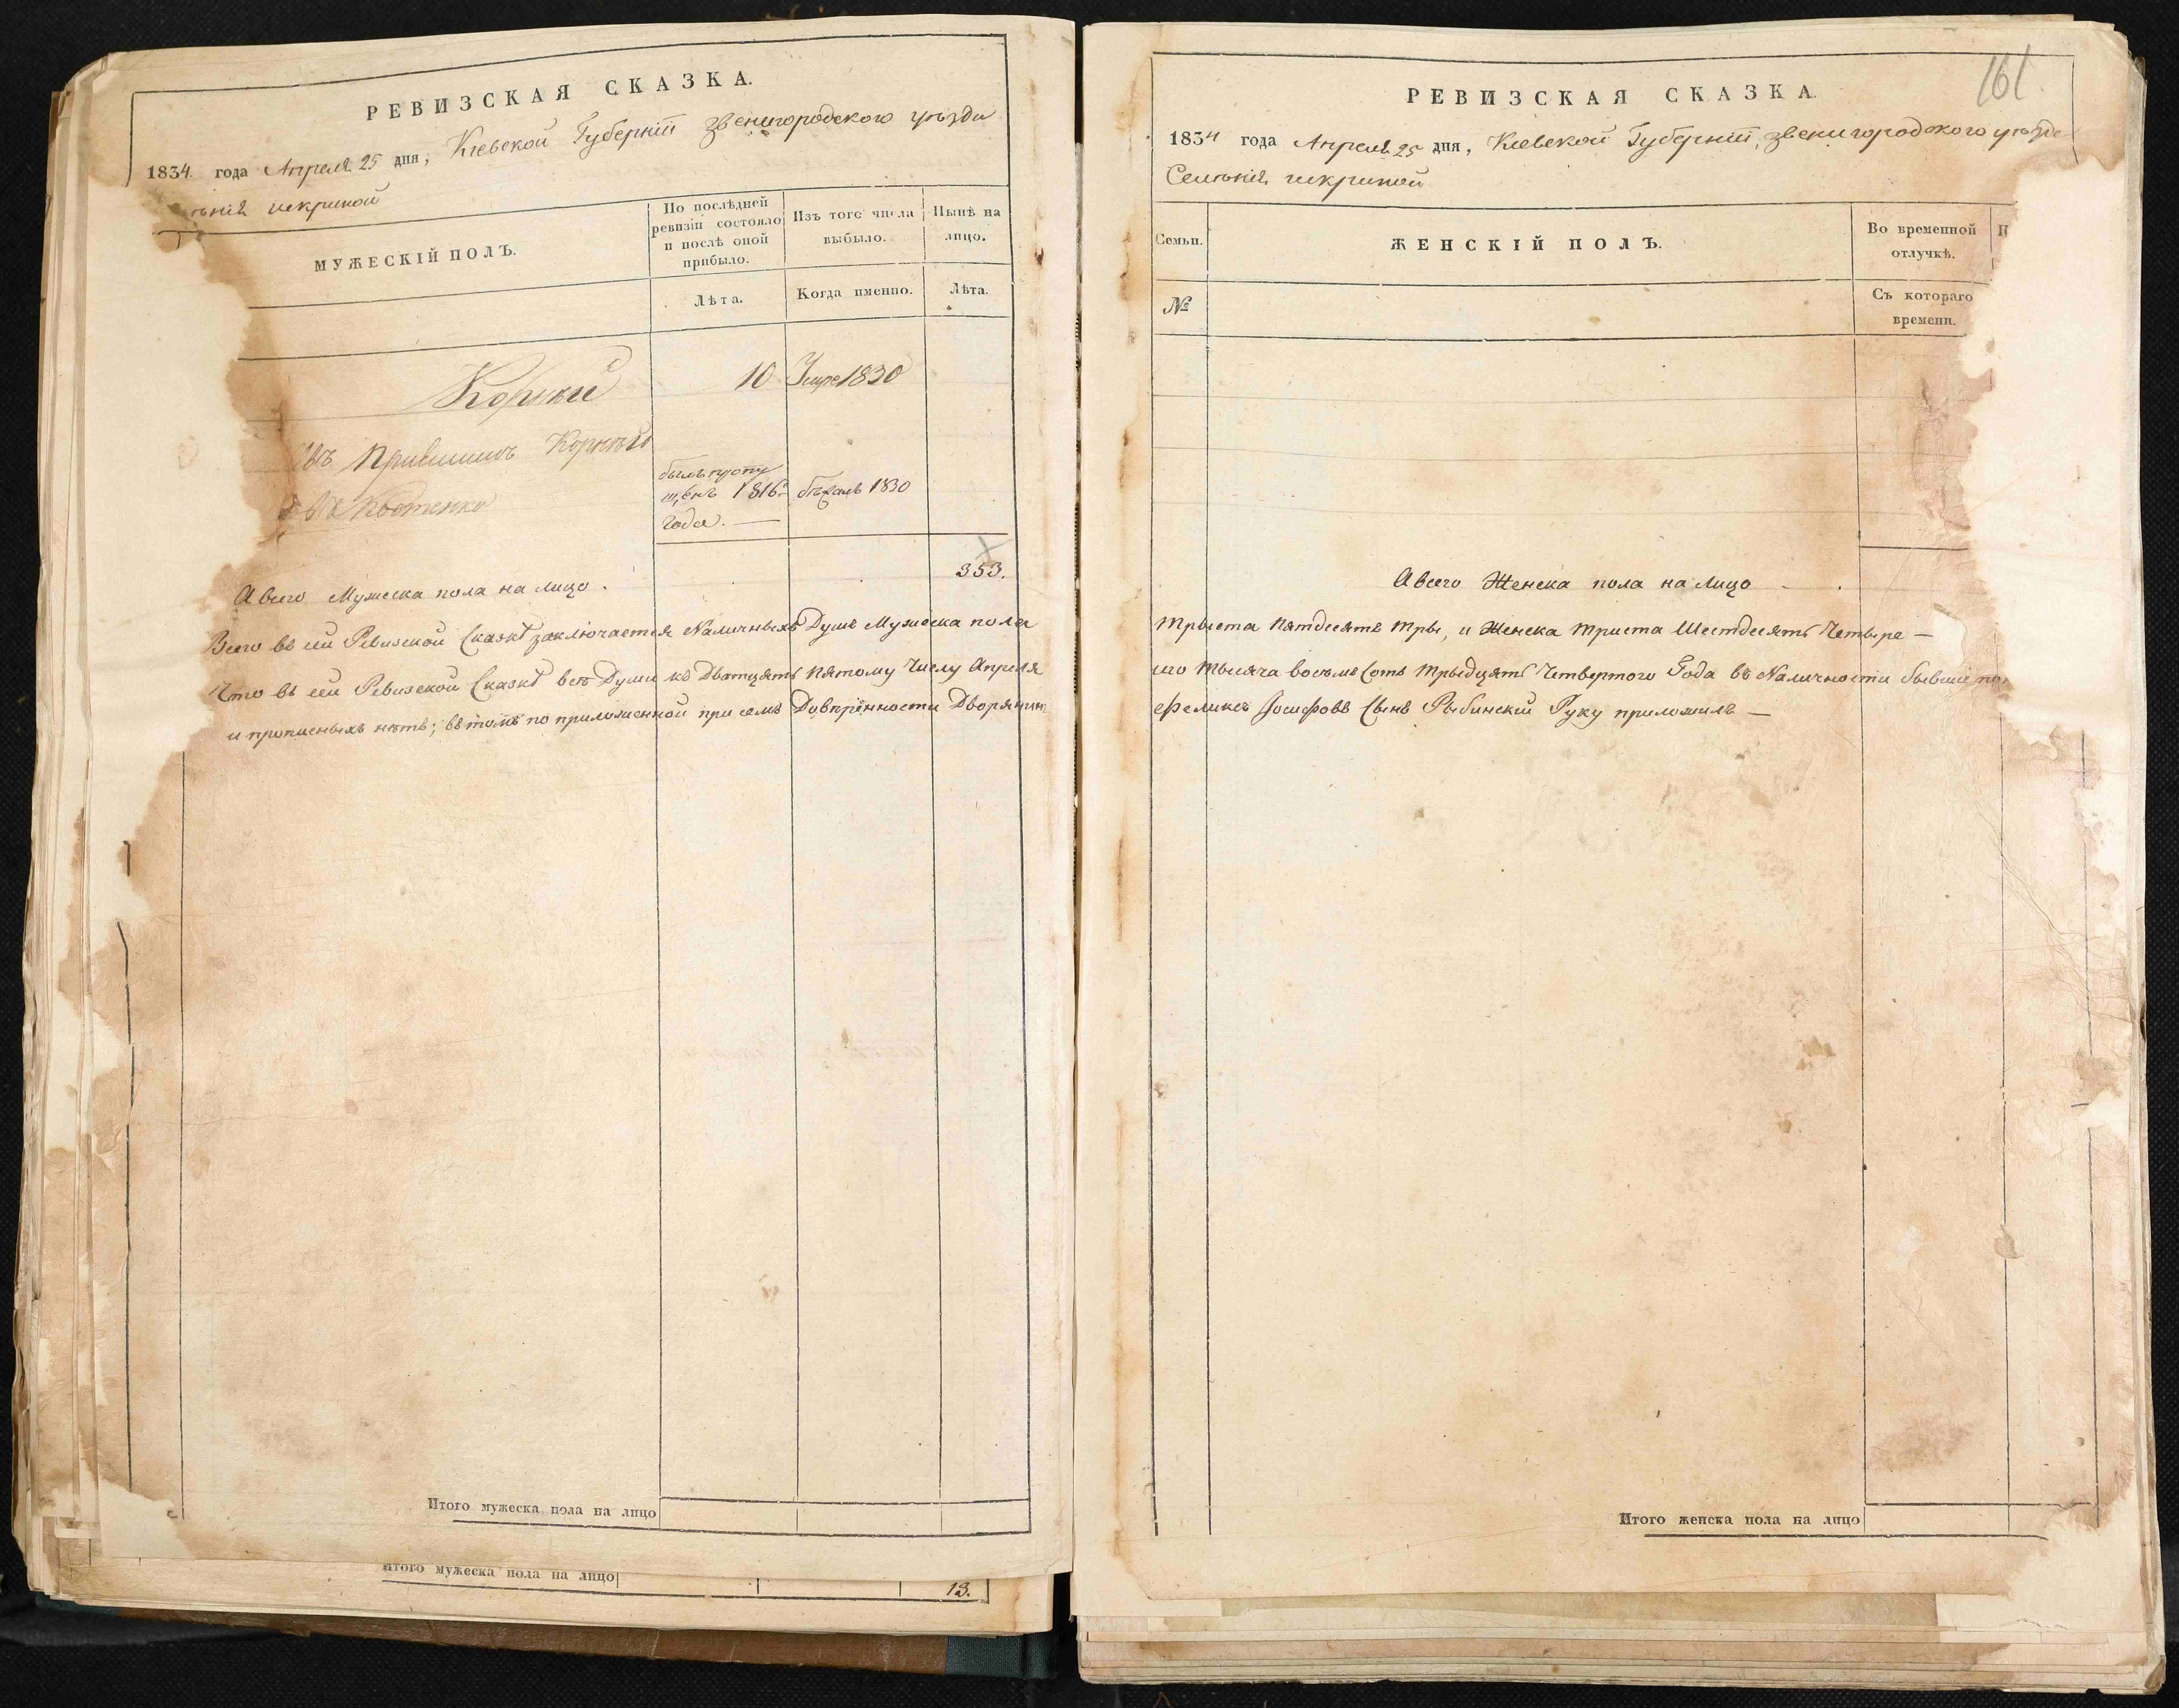 РЕВИЗСКАЯ СКАЗКА.
1834. года Апреля 25 дня, Киевской Губернїи Звенигородского уѣзда
искриной
МУЖЕСКІЙ ПОЛЪ.
По послѣдней ревизіи состояло и послѣ оной прибыло.
Изъ того числа выбыло.
Нынѣ на лицо.
Лѣта.
Когда именно.
Лѣта.
Корнѣй
10
1830
Корнѣй
былъ пропу
щенъ 1816г
года. —
бѣжалъ 1830
А всего Мужеска пола на лицо .
353.
Всего въ сей Ревизской Сказкѣ заключается Наличныхъ Душъ Мужеска пола
Что въ сей Ревизской Сказкѣ всѣ Души къ Дватцять Пятому Числу Апреля
и прописныхъ нѣтъ; въ томъ по приложенной при семъ Довѣрѣнности Дворянин
Итого мужеска пола на лицо
Итого мужеска пола на лицо
13.
161
РЕВИЗСКАЯ СКАЗКА.
1834 года Апреля 25 дня, Киевской Губернїи, Звенигородского уѣзда
Селѣнія искриной
Семьи.
ЖЕНСКІЙ ПОЛЪ.
Во временной отлучкѣ.
№
Съ котораго времени.
А всего Женска пола на Лицо
Трыста Пятдесятъ Тры, и Женска Триста Шестдесятъ Четыре —
го Тысяча восемъ Сотъ Трыдцять Четвертого Года въ Наличности бывшіе
Феликсъ Іосифовъ Сынъ Рыбинскій Руку приложилъ —
Итого женска пола на лицо